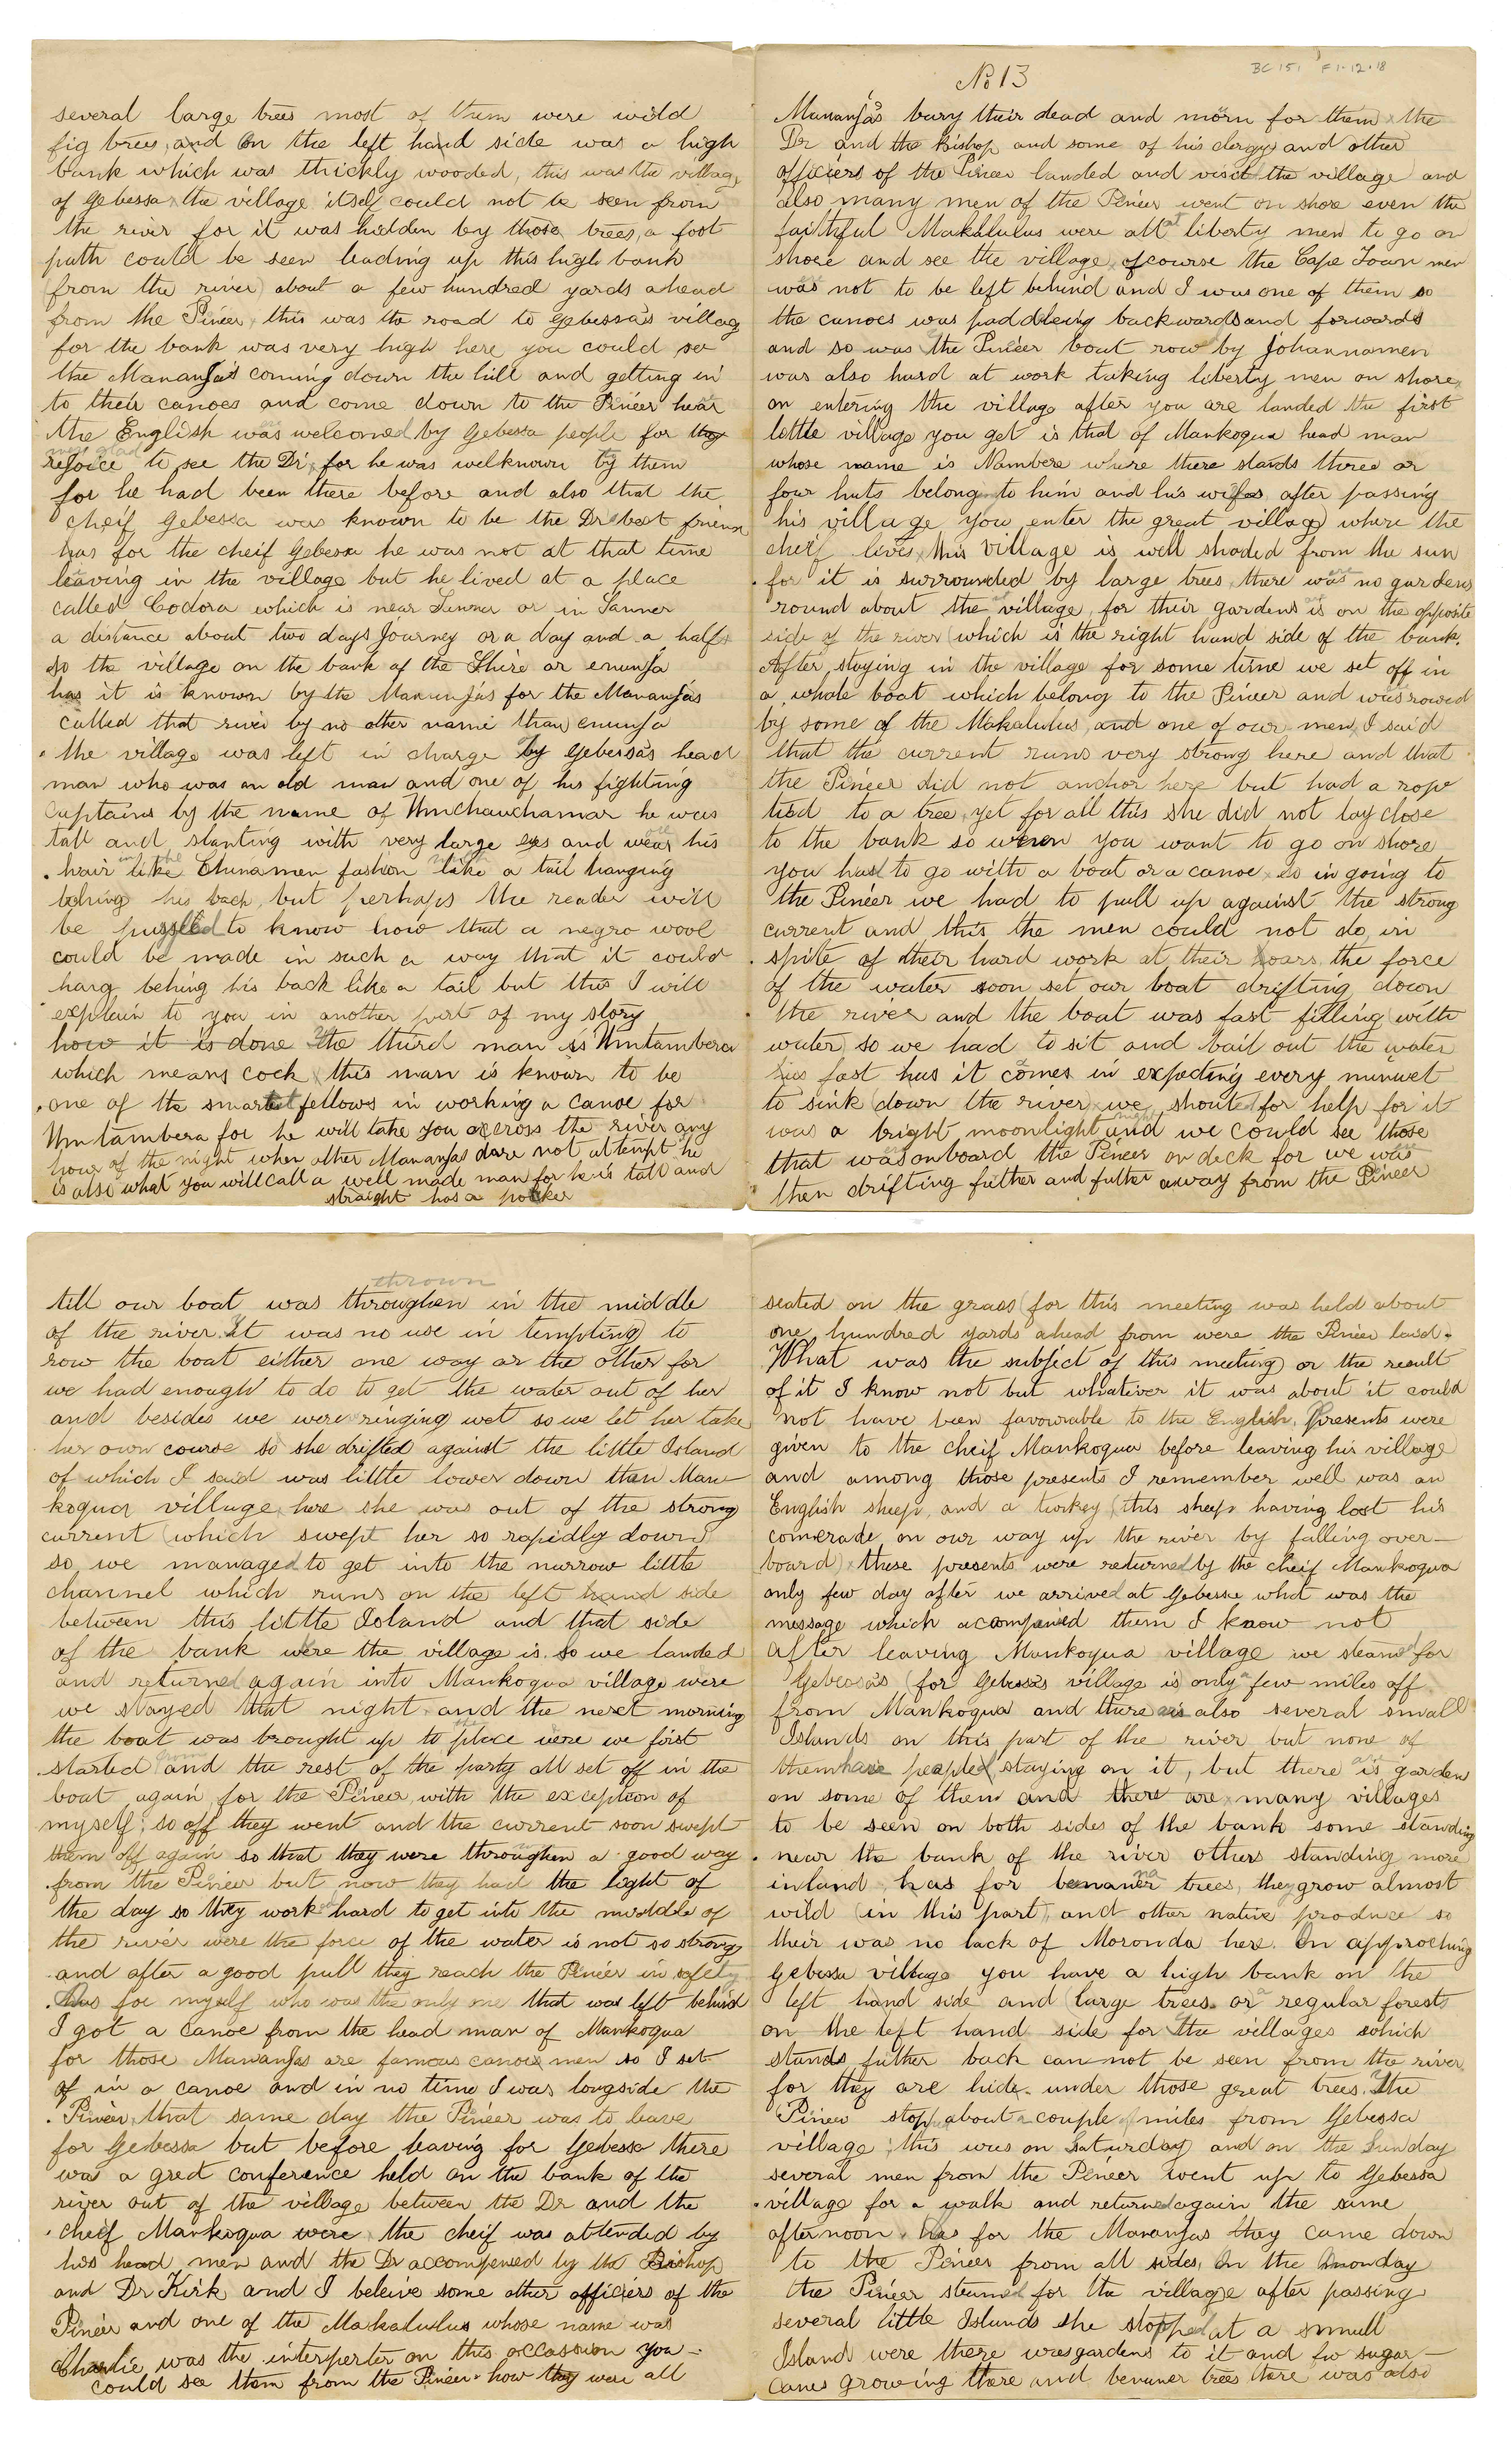 several large trees most of them were wild
fig trees, and on the left hand side was a high
bank which was thickly wooded, this was the village
of Gebessa the village itself could not be seen from
the river for it was hidden by those trees, a foot
path could be seen leading up this high bank
(from the river) about a few hundred yards ahead
from the Pineer, this was the road to Gebessa's village
for the bank was very high here you could see
the Mananja's coming down the hill and getting in
to their canoes and come down to the Pineer hear
the English was welcomed by Gebessa people for they
rejoice to see the Dr, for he was welknown by them
for he had been there before and also that the
cheif Gebessa was known to be the Dr best friend
has for the cheif Gebessa he was not at that time
leaving in the village but he lived at a place
called Codora which is near or in
a distance about two days Journey or a day and a half
so the village on the bank of the Shire or enunja
has it is known by the Mananjas for the Mananjas
called that river by no other name than enunja
the village was left in charge by Gebessa's head
man who was an old man and one of his fighting
captains by the name of Umchauchamar he was
tall and slanting with very large eyes and wear his
hair in like the Chinamen fashion like a tail hanging
behing his back, but perhaps the reader will
be pussled to know how that a negro wool
could be made in such a way that it could
hang behing his back like a tail but this I will
explain to you in another part of my story
how it is done the third man is Umtambera
which means cock this man is known to be
one of the smartest fellows in working a canoe for
Umtambera for he will take you across the river any
hour of the night when other Mananjas dare not attempt he
is also what you will call a well made man for he is tall and
straight has a poker
No 13
BC 151 F1.12.18
Mananja's bury their dead and morn for them the
Dr and the Bishop and some of his clergy and other
officiers of the Pineer landed and visit the village and
also many men of the Pineer went on shore even the
faithful Makalulus were all at liberty men to go on
shore and see the village, ofcourse the Cape Town men
was not to be left behind and I was one of them so
the canoes was paddleing backwards and forwards
and so was the Pineer boat row by Johannamen
was also hard at work taking liberty men on shore,
on entering the village after you are landed the first
lettle village you get is that of Mankoqua head man
whose name is Nambere where there stands three or
four huts belong to him and his wifes, after passing
his village you enter the great village where the
cheif lives, this village is well shaded from the sun
for it is surrounded by large trees, there was no gardens
round about the village, for their gardens is on the opposite
side of the river (which is the right hand side of the bank.
After staying in the village for some time we set off in
a whole boat which belong to the Pineer and was rowed
by some of the Makalulus and one of our men, I said
that the current runs very strong here and that
the Pineer did not anchor here but had a rope
tied to a tree, yet for all this she did not lay close
to the bank so when you want to go on shore
you had to go with a boat or a canoe, so in going to
the Pineer we had to pull up against the strong
current and this the men could not do, in
spite of their hard work at their hoars, the force
of the water soon set our boat drifting down
the river and the boat was fast filling with
water, so we had to sit and bail out the water
has fast has it comes in expecting every minuet
to sink (down the river) we shouted for help for it
was a bright moonlight night and we could see those
that was onboard the Pineer on deck for we was
then drifting futher and futher away from the Pineer
thrown
till our boat was throughen in the middle
of the river. It was no use in tempting to
row the boat either one way or the other for
we had enough to do to get the water out of her
and besides we were ringing wet so we let her take
her own course so she drifted against the little Island
of which I said was little lower down than Man-
koqua village, here she was out of the strong
current (which swept her so rapidly down)
so we managed to get into the narrow little
channel which runs on the left hand side
between this little Island and that side
of the bank were the village is. So we landed
and returned again into Mankoqua village were
we stayed that night and the next morning
the boat was brought up to the place were we first
started from and the rest of the party all set off in the
boat again, for the Pineer with the exception of
myself; so off they went and the current soon swept
them off again so that they were throughen a good way
from the Pineer but now they had the light of
the day so they worked hard to get into the middle of
the river were the force of the water is not so strong
and after a good pull they reach the Pineer in safety
Has for myself who was the only one that was left behind
I got a canoe from the head man of Mankoqua
for those Mananjas are famous canoe men so I set
of in a canoe and in no time I was longside the
Pineer, that same day the Pineer was to leave
for Gebessa but before leaving for Gebessa there
was a great conference held on the bank of the
river out of the village between the Dr and the
cheif Mankoqua were the cheif was attended by
his head men and the Dr accompened by the Bishop
and Dr Kirk and I beleive some other officiers of the
Pineer and one of the Makalulus whose name was
Charlie was the interperter on this occassion you
could see them from the Pineer how they were all
seated on the grass (for this meeting was held about
one hundred yards ahead from were the Pineer laid.
What was the subject of this meeting or the result
of it I know not but whatever it was about it could
not have been favourable to the English. Presents were
given to the cheif Mankoqua before leaving his village
and among those presents I remember well was an
English sheep, and a turkey (this sheep having lost his
comerade, on our way up the river by falling over-
board) these presents were returned by the cheif Mankoqua
only few day after we arrived at Gebessa what was the
message which acompened them I know not
After leaving Mankoqua village we steamed for
Gebessa's (for Gebessa's village is) only a few miles off
from Mankoqua and there is also several small
Islands on this part of the river but none of
them have peopled staying on it, but there is gardens
on some of them and there are many villages
to be seen on both sides of the bank some standing
near the bank of the river others standing more
inland has for benaner trees, they grow almost
wild (in this part) and other native produce so
their was no lack of Moronda here. On approching
Gebessa village you have a high bank on the
left hand side and (large trees or a regular forest)
on the left hand side for the villages which
stands futher back can not be seen from the river
for they are hide under those great trees. The
Pineer stop about a couple of miles from Gebessa
village; this was on Saturday and on the Sunday
several men from the Pineer went up to Gebessa
village for a walk and returned again the same
afternoon. has for the Mananjas they came down
to the Pineer from all sides, On the Monday
the Pineer steamed for the village after passing
several little Islands she stopped at a small
Island were there was gardens to it and few sugar-
canes growing there and benuner trees there was also